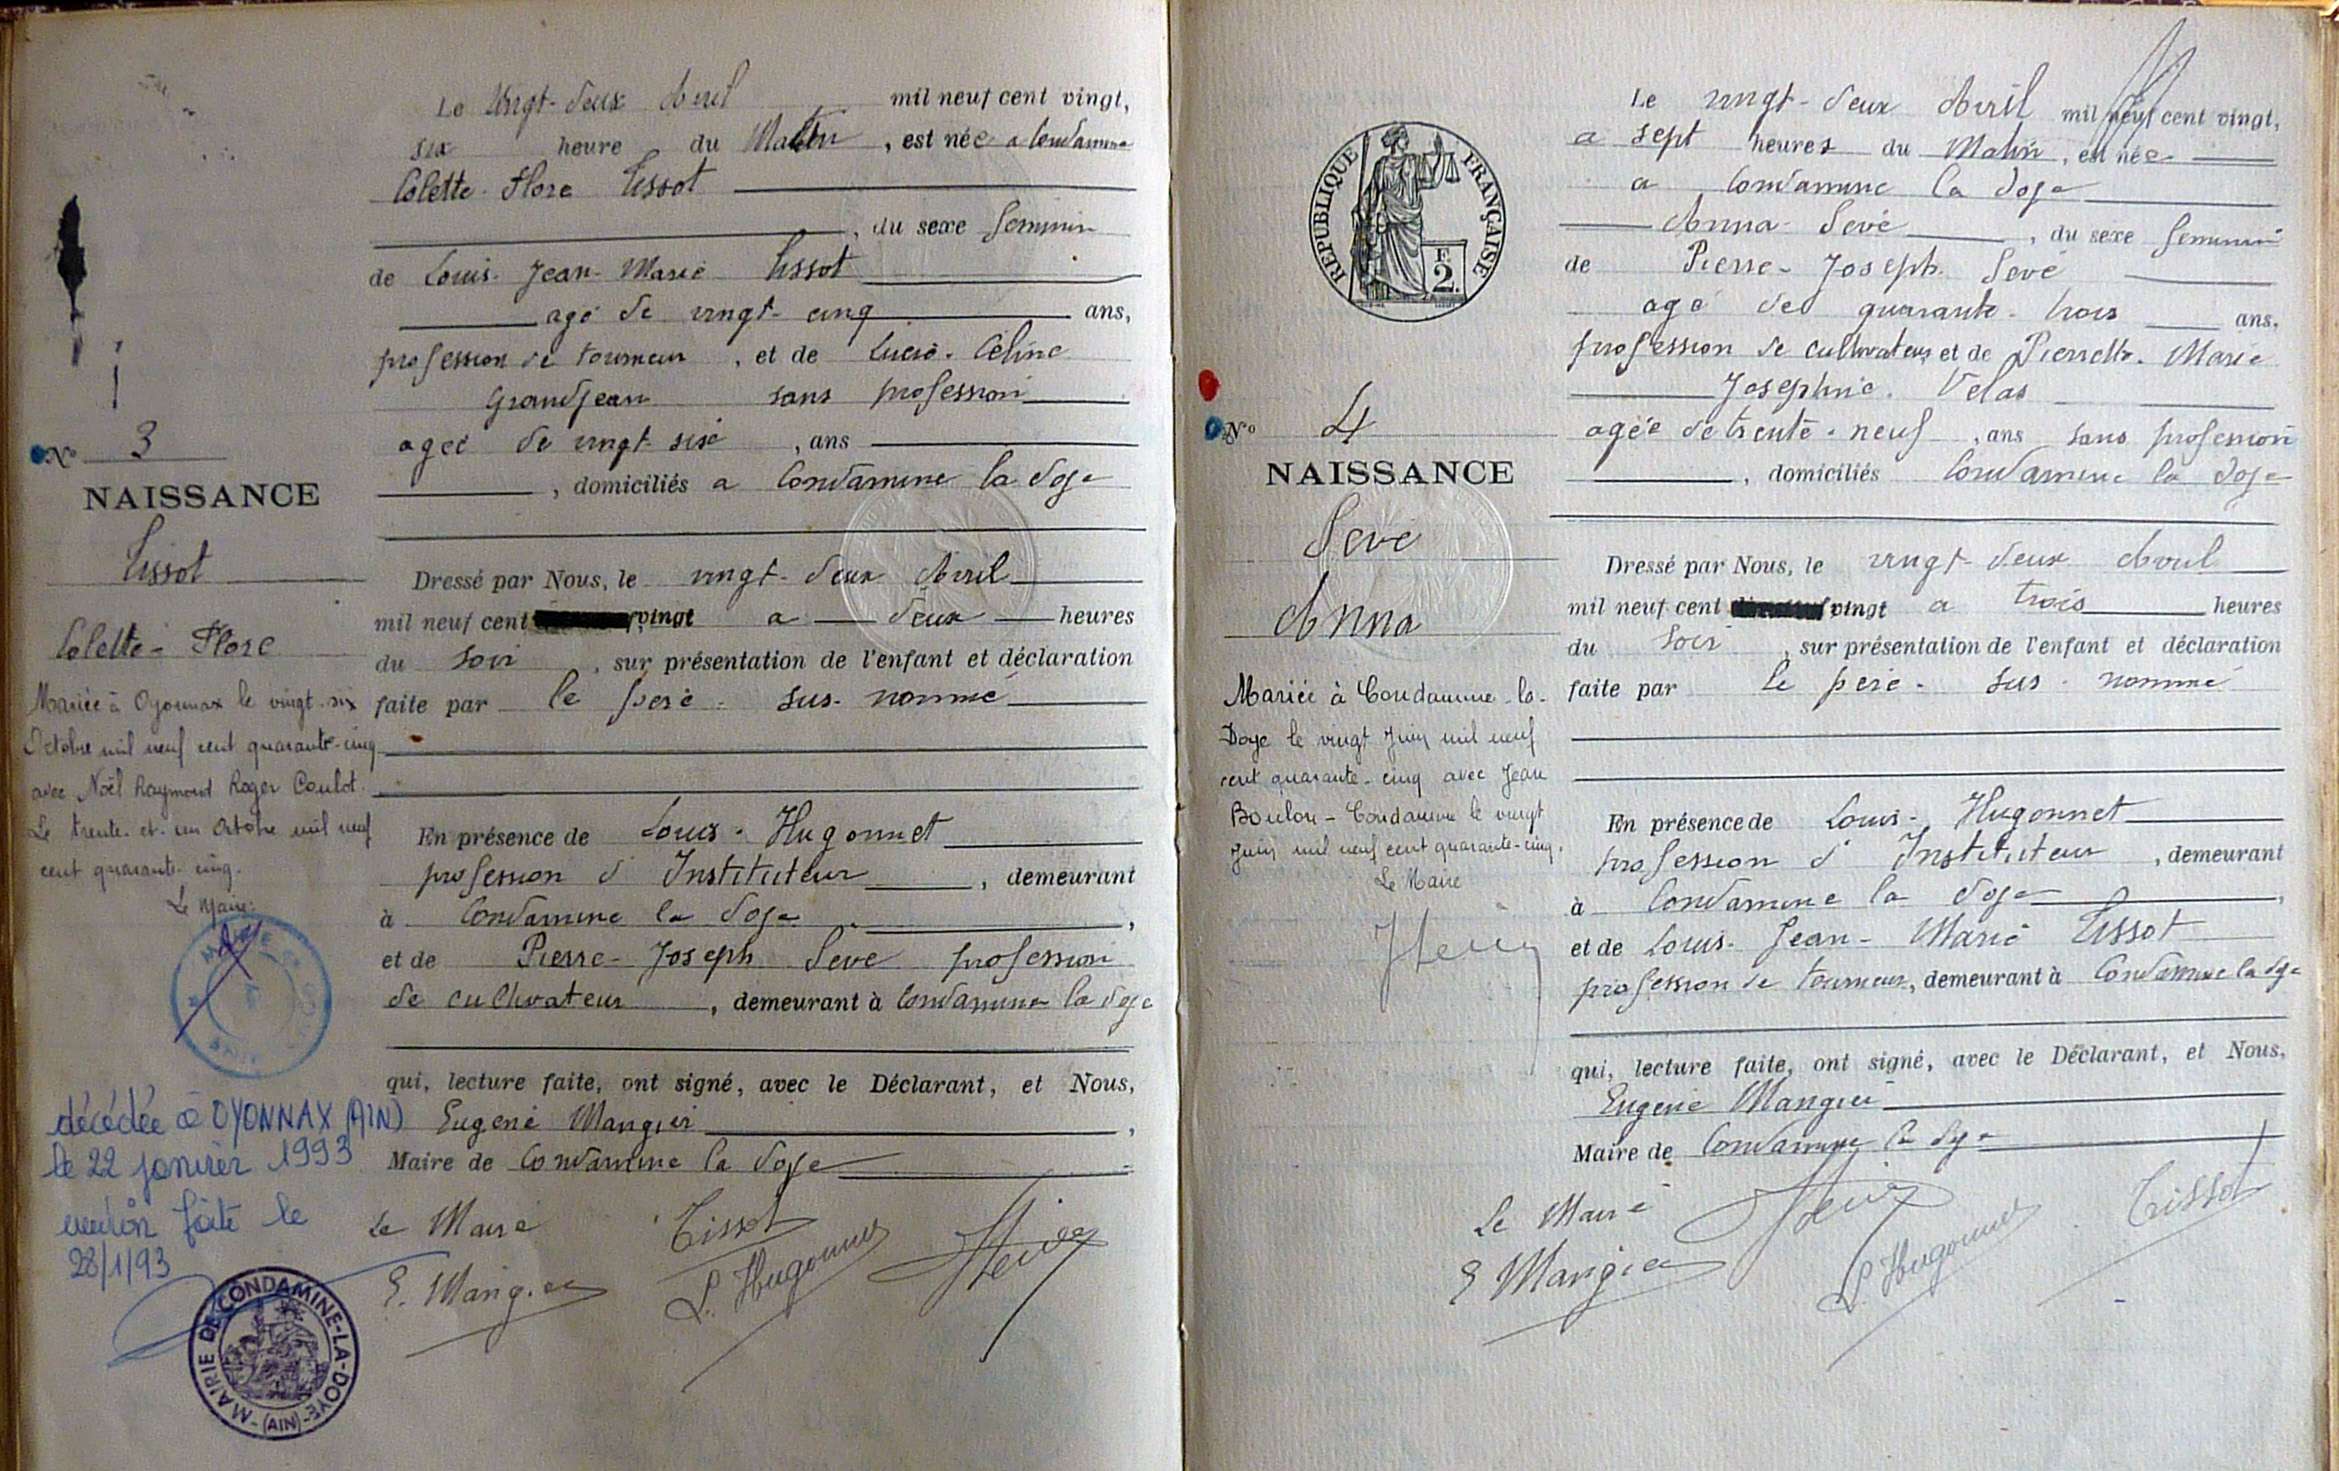 Le Vingt-deux Avril mil neuf cent vingt,
six heure du Matin, est née a Condamine
Colette-Flore Tissot
, du sexe feminin
de Louis-Jean-Marie Tissot
agé de vingt-cinq ans,
profession de tourneur, et de Lucie-Céline
Grandjean sans profession
agée de vingt-six, ans
, domiciliés a Condamine la doye
Dressé par Nous, le vingt-deux Avril
mil neuf cent vingt a deux heures
du soir, sur présentation de l'enfant et déclaration
faite par le père-sus-nommé
En présence de Louis-Hugonnet
profession d'Instituteur, demeurant
à Condamine la doye,
et de Pierre-Joseph Sève profession
de cultivateur, demeurant à Condamine la doye
qui, lecture faite, ont signé, avec le Déclarant, et Nous,
Eugène Mangier,
Maire de Condamine la doye
Le Maire
Tissot
E. Mangier
L. Hugonnet
Sève
No 3
NAISSANCE
Tissot
Colette-Flore
Mariée à Oyonnax le vingt-six
Octobre mil neuf cent quarante-cinq
avec Noël Raymond Roger Coulot.
Le trente-et-un Octobre mil neuf
cent quarante-cinq.
Le Maire:
décédée à OYONNAX (AIN)
le 22 janvier 1993
mention faite le
28/1/93
MAIRIE DE CONDAMINE-LA-DOYE
-(AIN)-
Le vingt-deux Avril mil neuf cent vingt,
a sept heures du Matin, est née
a Condamine la doye
Anna-Sevé, du sexe feminin
de Pierre-Joseph Sevé
agé de quarante-trois ans,
profession de cultivateur, et de Pierrette-Marie
Josephine. Velas
agée de trente-neuf, ans sans profession
, domiciliés Condamine la doye
Dressé par Nous, le vingt-deux Avril
mil neuf cent vingt a trois heures
du soir, sur présentation de l'enfant et déclaration
faite par le père-sus-nommé
En présence de Louis-Hugonnet
profession d'Instituteur, demeurant
à Condamine la doye,
et de Louis-Jean-Marie Tissot
profession de tourneur, demeurant à Condamine la doye
qui, lecture faite, ont signé, avec le Déclarant, et Nous,
Eugène Mangier
Maire de Condamine la doye
Le Maire
Sève
Tissot
E Mangier
L. Hugonnet
RÉPUBLIQUE FRANÇAISE
F.
2.
No 4
NAISSANCE
Sevé
Anna
Mariée à Condamine-la-
Doye le vingt Juin mil neuf
cent quarante-cinq avec Jean
Boulon-Condamine le vingt
Juin mil neuf cent quarante-cinq.
Le Maire